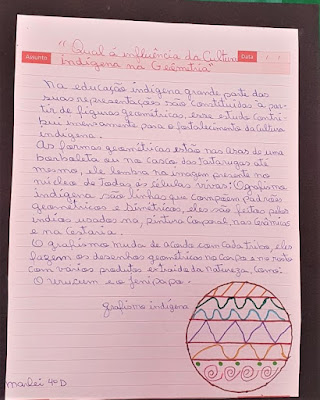 "Qual á influência da Cultura
Assunto Indígena na Geômtria" Data / /
Na educação indígena grande parte das
suas representações são constituídas a par-
tir de figuras geométricas, esse estudo contri-
bui imensamente para o fortalecimento da Cultura
indígena.
As formas geométricas estão nas asas de uma
borboleta ou no casco das tartarugas até
mesmo, ele lembra na imagem presente no
núcleo de todas as células vivas: O grafismo
indígena são linhas que compõem padrões
geométricos e simétricos, eles são feitos pelos
indios usados na, pintura Corporal, nas Cerâmicas
e na Cestaria.
O grafismo muda de acordo com cada tribo, eles
fazem os desenhos geométricos no Corpo e no rosto
com vários produtos extraido da Natureza, Como:
O Urucum e o Jenipapo.
grafismo indígena
marlei 4º D